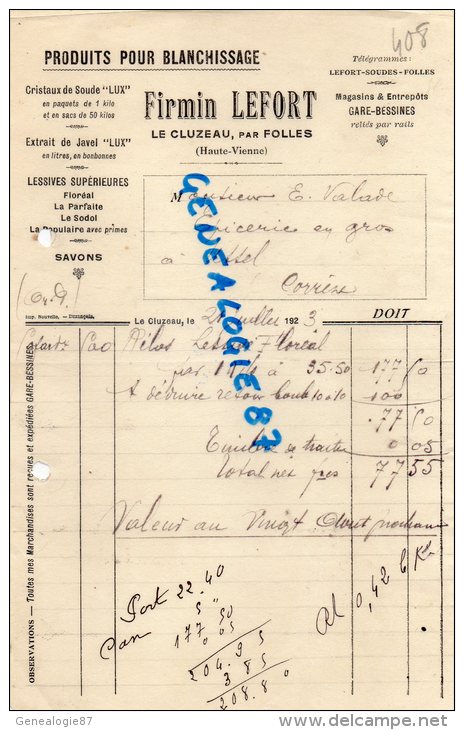 408
PRODUITS POUR BLANCHISSAGE
Télégrammes :
LEFORT-SOUDES-FOLLES
Cristaux de Soude "LUX"
en paquets de 1 kilo
et en sacs de 50 kilos
Extrait de Javel "LUX"
en litres, en bonbonnes
LESSIVES SUPÉRIEURES
Floréal
La Parfaite
Le Sodol
La Populaire avec primes
SAVONS
Firmin LEFORT
LE CLUZEAU, PAR FOLLES
(Haute-Vienne)
Magasins & Entrepôts
GARE-BESSINES
reliés par rails
Monsieur E. Valade
Épicerie en gros
à Ussel
Corrèze
Imp. Nouvelle,
Le Cluzeau, le 21 Juillet 1923
DOIT
500 Kilos Lessive Floréal
à 35.50 177 50
A déduire retour 100
77 50
Timbre de traite 0 05
Total net 77 55
Valeur au Vingt Août prochain
Port 22.40
5 "
177 50
0 05
204.95
3 85
208.80
0,42 le K
OBSERVATIONS — Toutes mes Marchandises sont reçues et expédiées GARE-BESSINES
GENEALOGIE87
Genealogie87